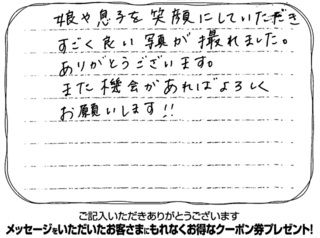 娘や息子を笑顔にしていただき
すごく良い写真が撮れました。
ありがとうございます。
また機会があればよろしく
お願いします!!
ご記入いただきありがとうございます
メッセージをいただいたお客さまにもれなくお得なクーポン券プレゼント!